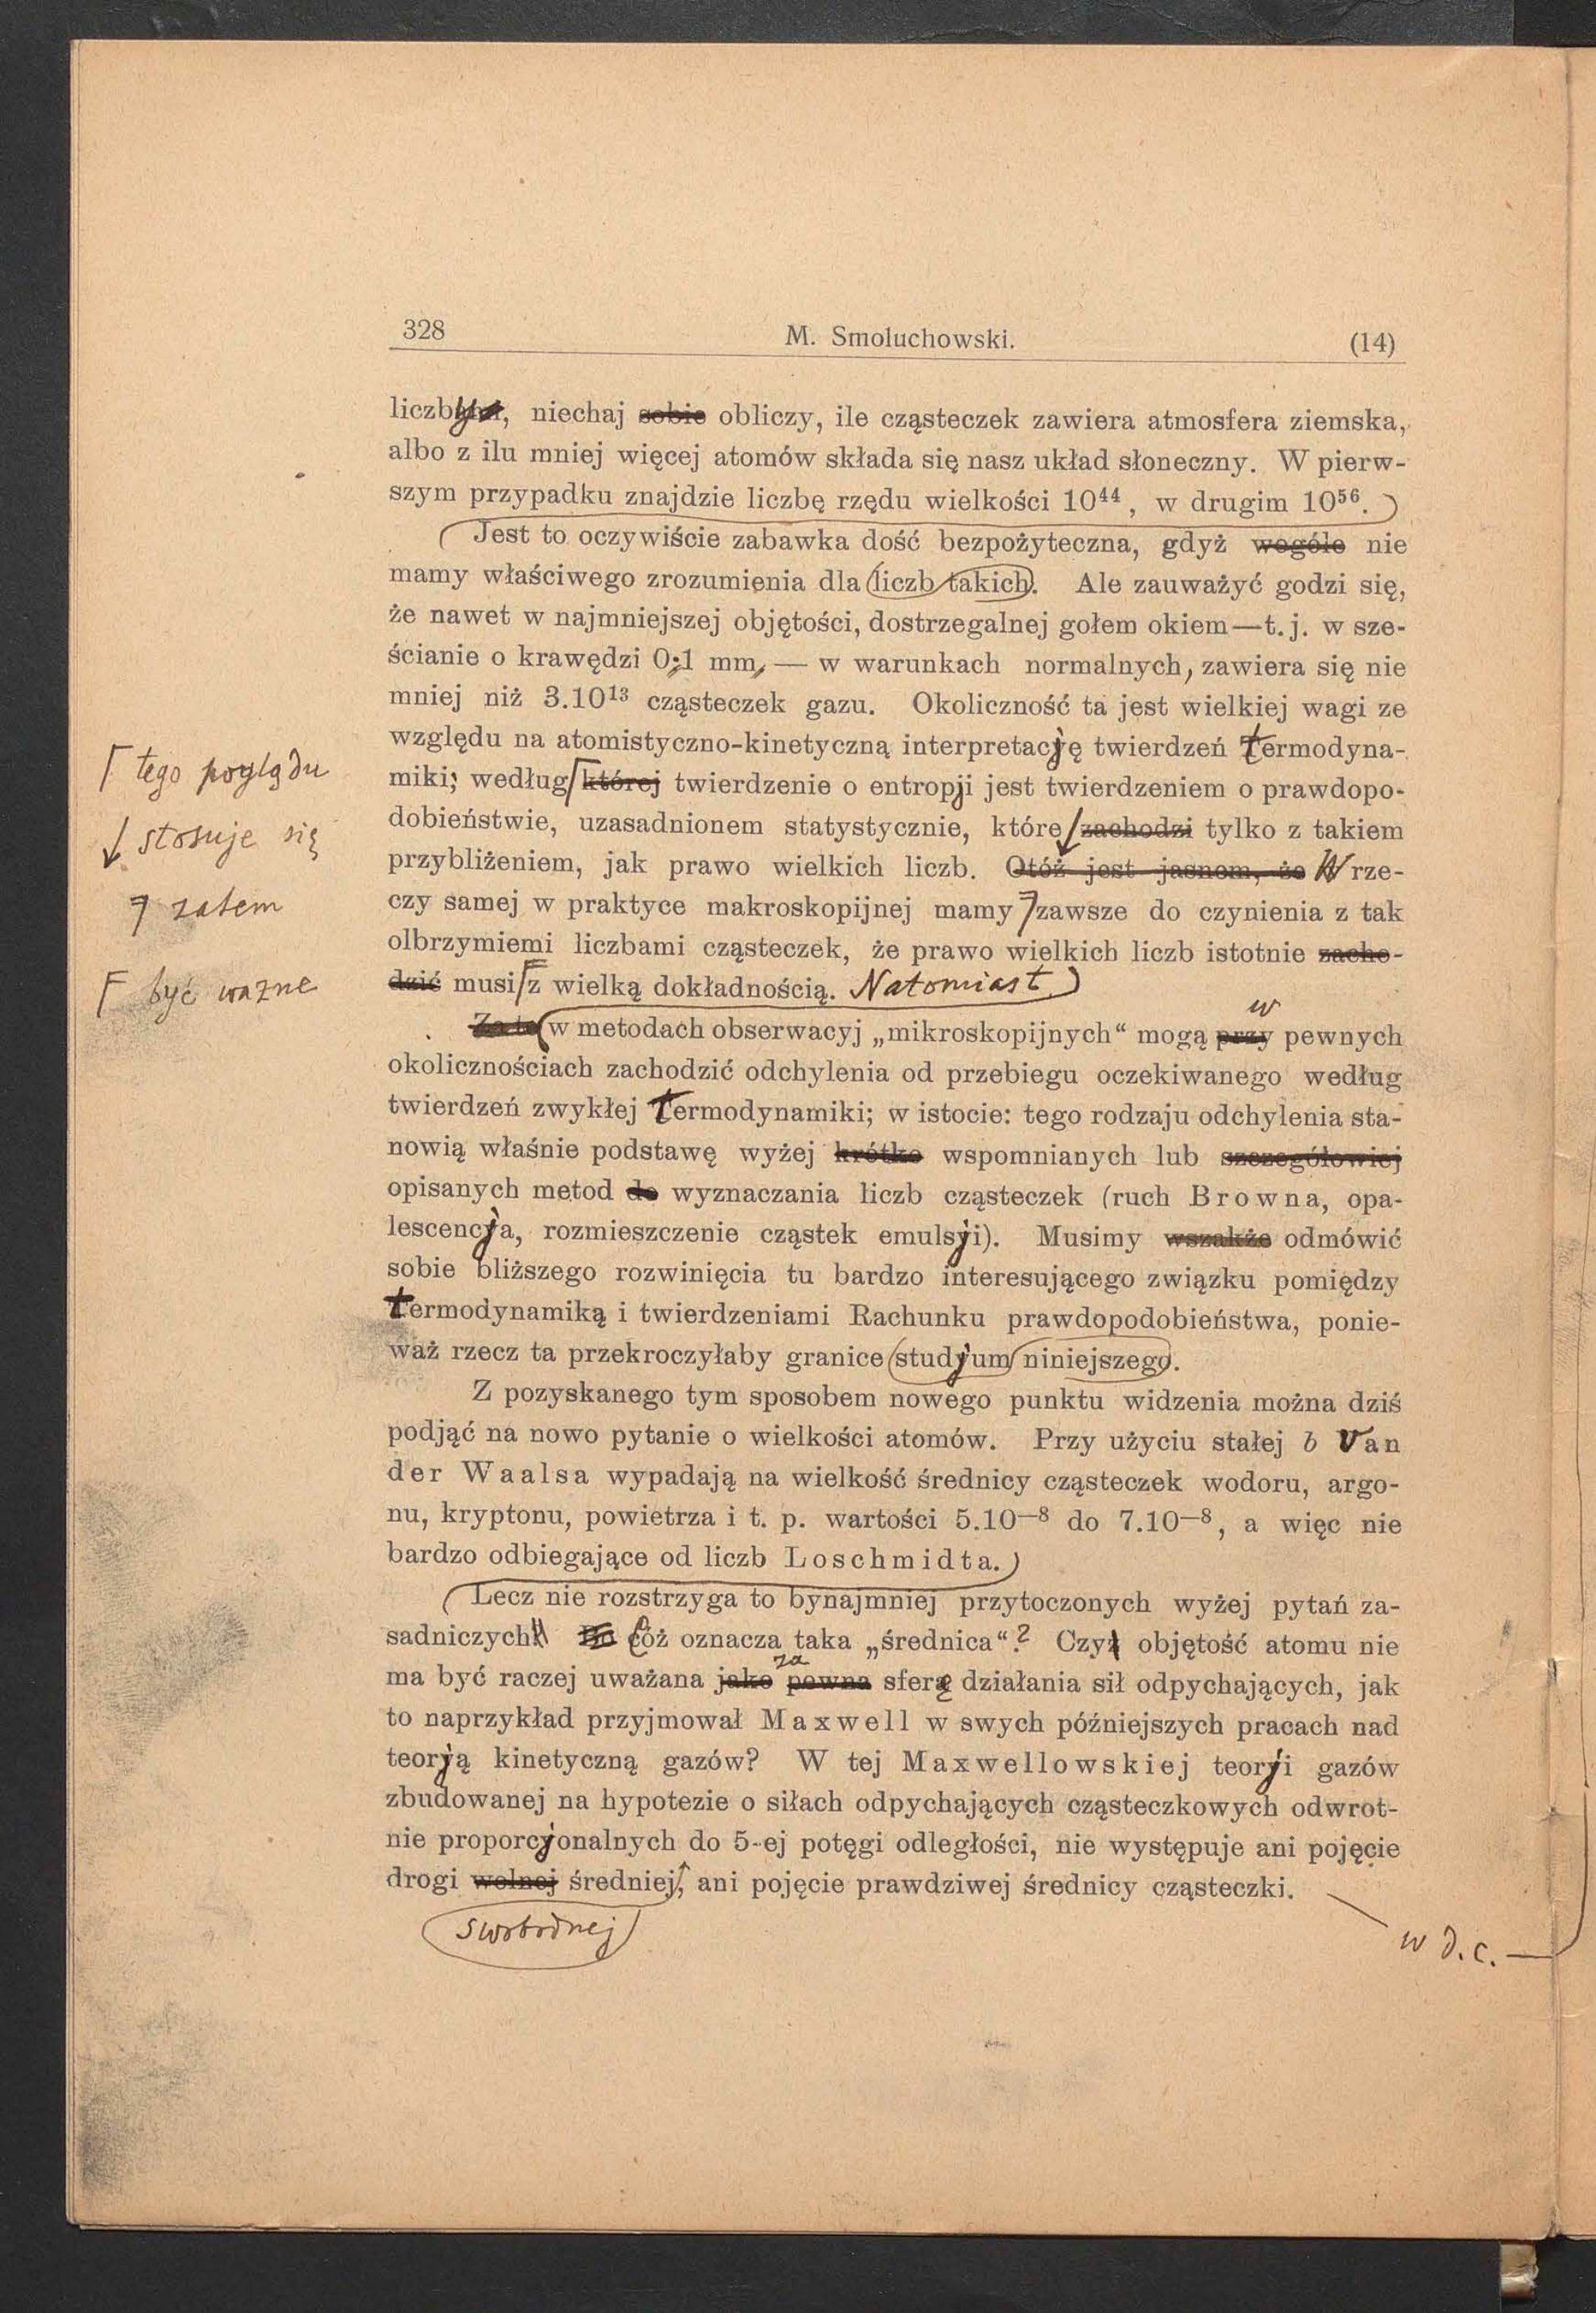 328 M. Smoluchowski. (14)
liczby, niechaj sobie obliczy, ile cząsteczek zawiera atmosfera ziemska,
albo z ilu mniej więcej atomów składa się nasz układ słoneczny. W pierw-
szym przypadku znajdzie liczbę rzędu wielkości 10⁴⁴, w drugim 10⁵⁶.
Jest to oczywiście zabawka dość bezpożyteczna, gdyż wogóle nie
mamy właściwego zrozumienia dla liczb takich. Ale zauważyć godzi się,
że nawet w najmniejszej objętości, dostrzegalnej gołem okiem—t. j. w sze-
ścianie o krawędzi 0,1 mm, — w warunkach normalnych, zawiera się nie
mniej niż 3.10¹³ cząsteczek gazu. Okoliczność ta jest wielkiej wagi ze
względu na atomistyczno-kinetyczną interpretację twierdzeń termodyna-
⌈ tego poglądu
miki; według ⌈ której twierdzenie o entropji jest twierdzeniem o prawdopo-
dobieństwie, uzasadnionem statystycznie, które zachodzi tylko z takiem
↓ stosuje się
przybliżeniem, jak prawo wielkich liczb. Otóż jest jasnem, że W rze-
czy samej w praktyce makroskopijnej mamy ⌉ zawsze do czynienia z tak
⌉ zatem
olbrzymiemi liczbami cząsteczek, że prawo wielkich liczb istotnie zacho-
dzić musi z wielką dokładnością. Natomiast
⌈ być ważne
w
Zato w metodach obserwacyj „mikroskopijnych“ mogą przy pewnych
okolicznościach zachodzić odchylenia od przebiegu oczekiwanego według
twierdzeń zwykłej termodynamiki; w istocie: tego rodzaju odchylenia sta-
nowią właśnie podstawę wyżej krótko wspomnianych lub szczegółowiej
opisanych metod do wyznaczania liczb cząsteczek (ruch Browna, opa-
lescencja, rozmieszczenie cząstek emulsji). Musimy wszakże odmówić
sobie bliższego rozwinięcia tu bardzo interesującego związku pomiędzy
termodynamiką i twierdzeniami Rachunku prawdopodobieństwa, ponie-
waż rzecz ta przekroczyłaby granice studjum niniejszego.
Z pozyskanego tym sposobem nowego punktu widzenia można dziś
podjąć na nowo pytanie o wielkości atomów. Przy użyciu stałej b Van
der Waalsa wypadają na wielkość średnicy cząsteczek wodoru, argo-
nu, kryptonu, powietrza i t. p. wartości 5.10⁻⁸ do 7.10⁻⁸, a więc nie
bardzo odbiegające od liczb Loschmidta.
Lecz nie rozstrzyga to bynajmniej przytoczonych wyżej pytań za-
sadniczych. Cóż oznacza taka „średnica“? Czy objętość atomu nie
za
ma być raczej uważana jako pewna sferę działania sił odpychających, jak
to naprzykład przyjmował Maxwell w swych późniejszych pracach nad
teorją kinetyczną gazów? W tej Maxwellowskiej teorji gazów
zbudowanej na hypotezie o siłach odpychających cząsteczkowych odwrot-
nie proporcjonalnych do 5-ej potęgi odległości, nie występuje ani pojęcie
drogi wolnej średniej, ani pojęcie prawdziwej średnicy cząsteczki.
swobodnej
w d. c.